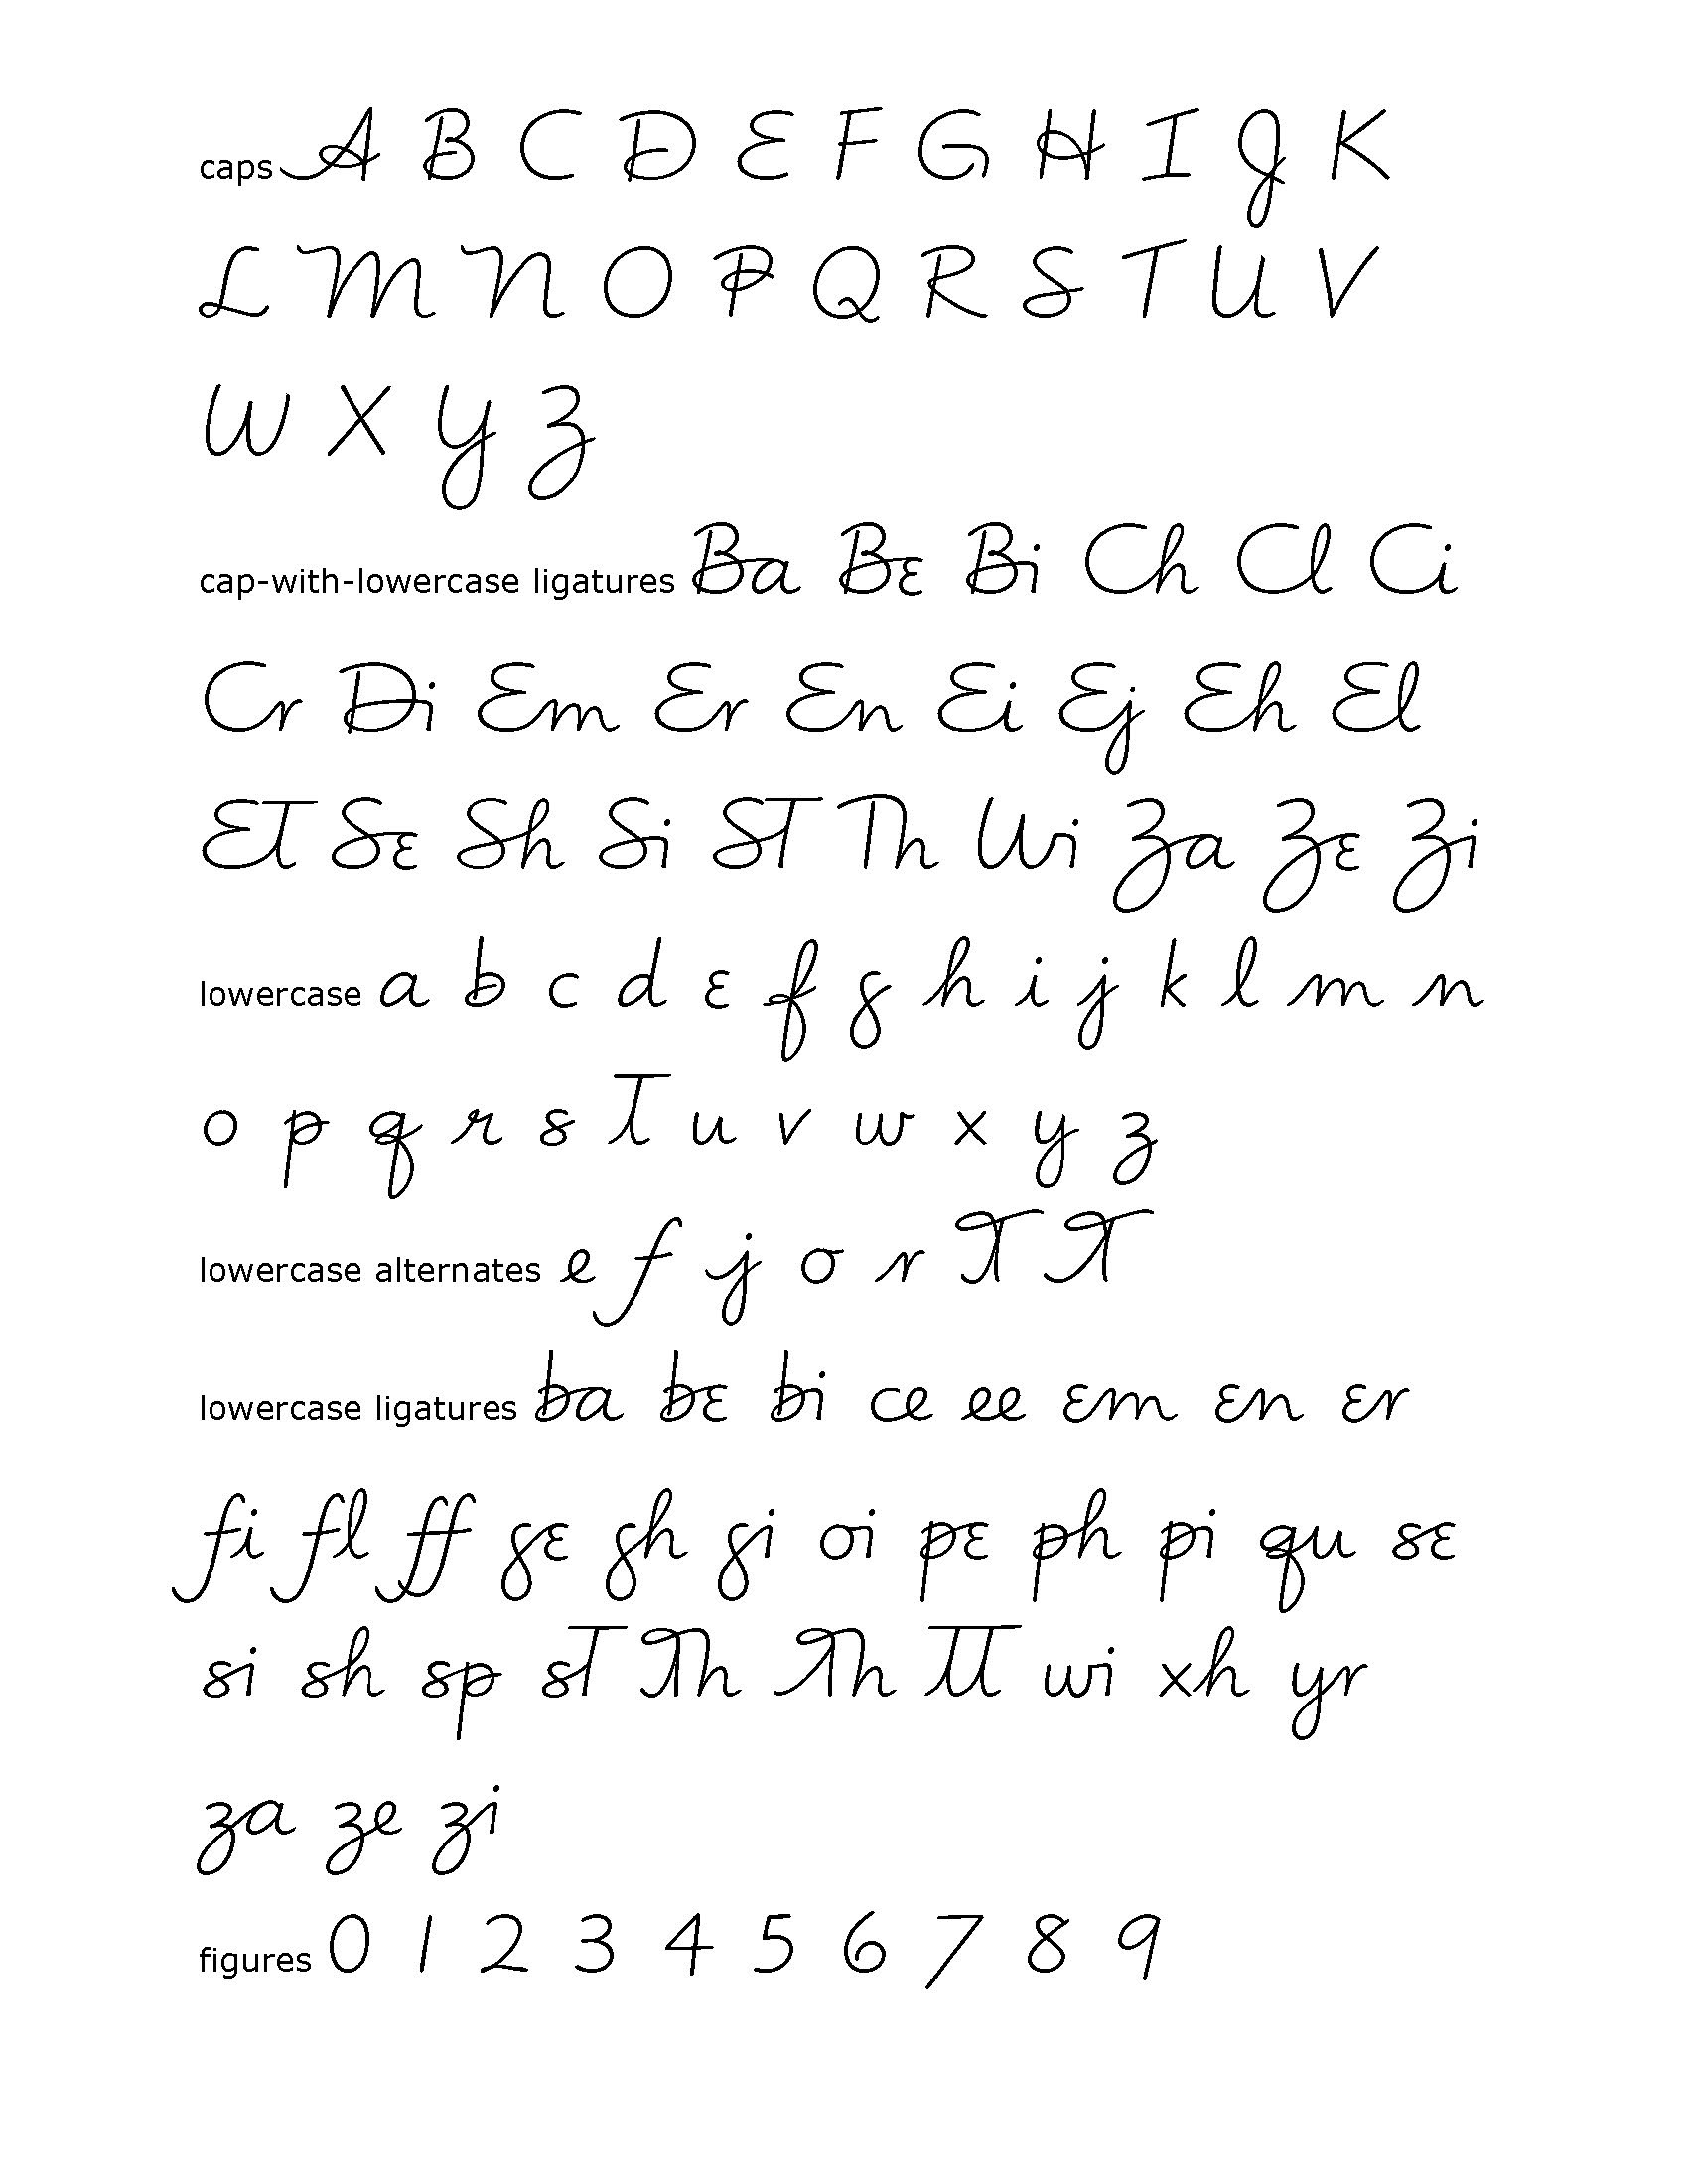 caps A B C D E F G H I J K
L M N O P Q R S T U V
W X Y Z
cap-with-lowercase ligatures Ba Be Bi Ch Cl Ci
Cr Di Em Er En Ei Ej Eh El
Et Se Sh Si St Th Wi Za Ze Zi
lowercase a b c d e f g h i j k l m n
o p q r s t u v w x y z
lowercase alternates e f j o r t t
lowercase ligatures ba be bi ce ee em en er
fi fl ff ge gh gi oi pe ph pi qu se
si sh sp st th th tt wi xh yr
za ze zi
figures 0 1 2 3 4 5 6 7 8 9